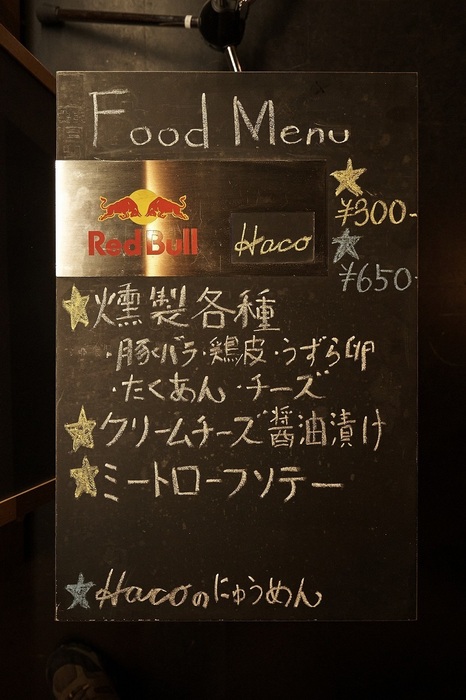 Food Menu
★
¥300-
Red Bull
Haco
★
¥650-
★燻製各種
・豚バラ・鶏皮・うずら卵
・たくあん・チーズ
★クリームチーズ醤油漬け
★ミートローフソテー
★Hacoのにゅうめん